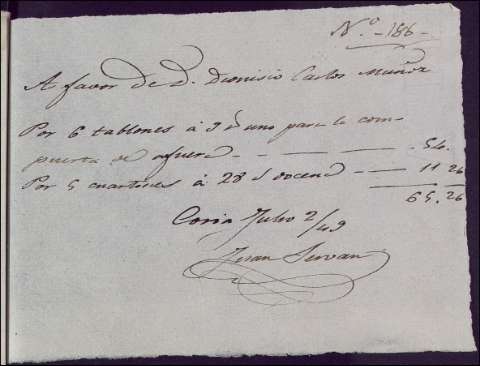 N.º - 186 -
A favor de D. Dionisio Carlos Muñoz
Por 6 tablones á 9 uno para la com-
puerta de afuera - 54.
Por 5 cuartones á 28 docena 11 26
65.26
Coria Julio 2/49
Juan Servan